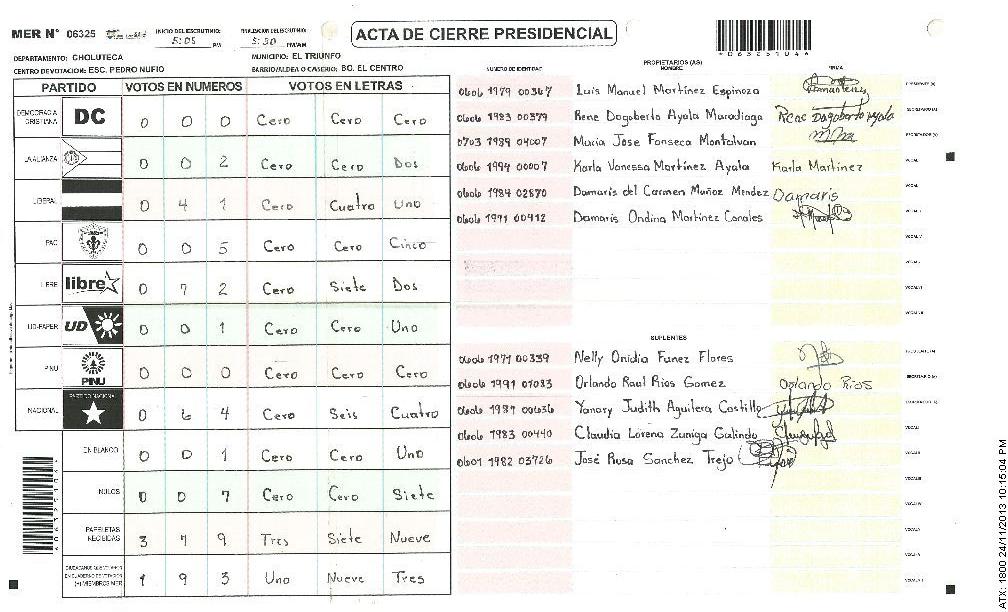 MER N° 06325
INICIO DEL ESCRUTINIO: 5:05 PM
FINALIZACION DEL ESCRUTINIO: 5:30 PM/AM
ACTA DE CIERRE PRESIDENCIAL
DEPARTAMENTO: CHOLUTECA
MUNICIPIO: EL TRIUNFO
CENTRO DE VOTACION: ESC. PEDRO NUFIO
BARRIO/ALDEA O CASERIO: BO. EL CENTRO
PARTIDO VOTOS EN NUMEROS VOTOS EN LETRAS
DEMOCRACIA CRISTIANA DC 0 0 0 Cero Cero Cero
LA ALIANZA 0 0 2 Cero Cero Dos
LIBERAL 0 4 1 Cero Cuatro Uno
PAC 0 0 5 Cero Cero Cinco
LIBRE libre 0 7 2 Cero Siete Dos
UD-FAPER UD 0 0 1 Cero Cero Uno
PINU PINU 0 0 0 Cero Cero Cero
NACIONAL PARTIDO NACIONAL 0 6 4 Cero Seis Cuatro
EN BLANCO 0 0 1 Cero Cero Uno
NULOS 0 0 7 Cero Cero Siete
PAPELETAS RECIBIDAS 3 7 9 Tres Siete Nueve
1 9 3 Uno Nueve Tres
NUMERO DE IDENTIDAD PROPIETARIOS (AS) NOMBRE FIRMA
0606 1979 00367 Luis Manuel Martinez Espinoza PRESIDENTE (A)
0606 1983 00379 Rene Dagoberto Ayala Maradiaga SECRETARIO (A)
0703 1989 04007 Maria Jose Fonseca Montalvan ESCRUTADOR (A)
0606 1994 00007 Karla Vanessa Martinez Ayala Karla Martinez VOCAL I
0606 1984 02870 Damaris del Carmen Muñoz Mendez Damaris
0606 1991 00412 Damaris Ondina Martinez Canales
SUPLENTES
0606 1977 00339 Nelly Onidia Funez Flores
0606 1991 01083 Orlando Raul Rios Gomez Orlando Rios SECRETARIO (A)
0606 1987 00636 Yanory Judith Aguilera Castillo
0606 1983 00440 Claudia Lorena Zuniga Galindo
0601 1982 03726 José Rusa Sanchez Trejo
ATX: 1800 24/11/2013 10:15:04 PM